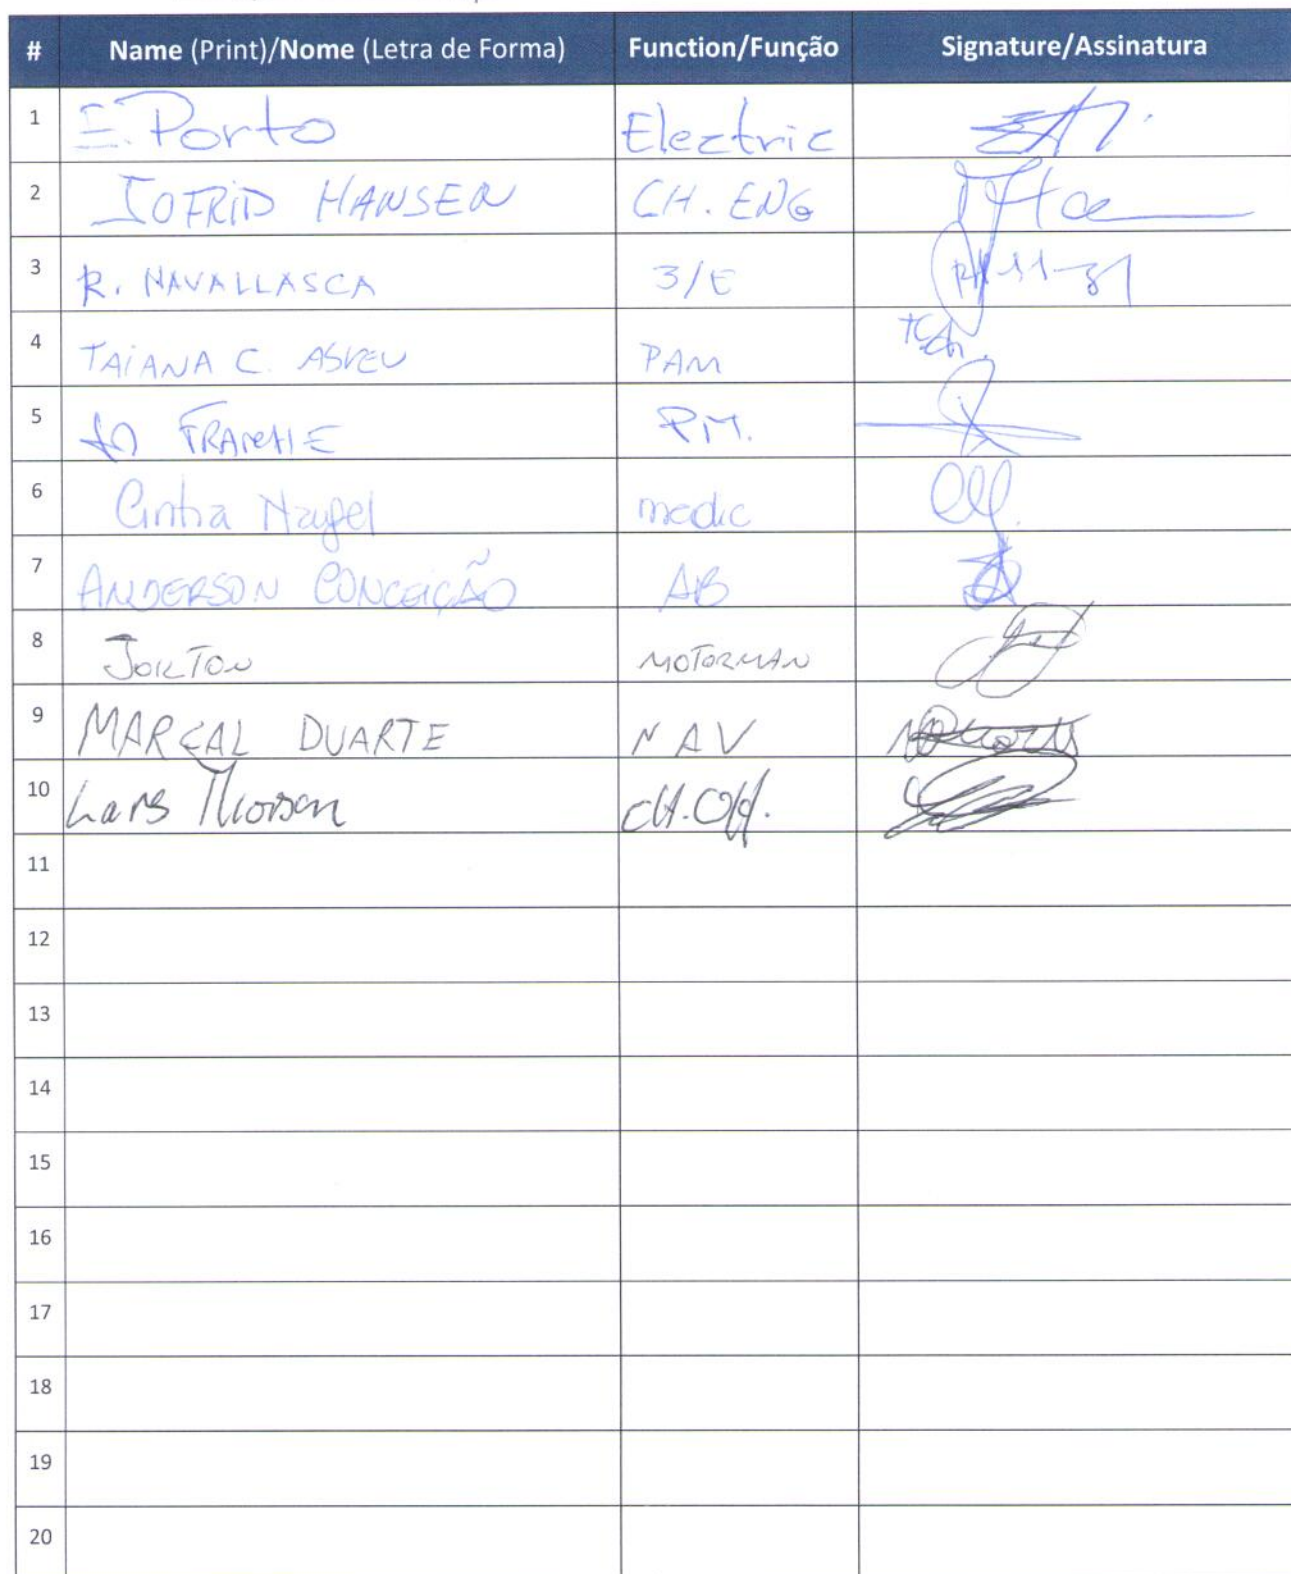 # Name (Print)/Nome (Letra de Forma) Function/Função Signature/Assinatura
1 E. Porto Electric
2 JOFRID HANSEN CH. ENG
3 R. NAVALLASCA 3/E
4 TAIANA C. ABREU PAM
5 PM.
6 Cintia medic
7 ANDERSON CONCEIÇÃO AB
8 JOILTON MOTORMAN
9 MARÇAL DUARTE NAV
10 Lars CH.Off.
11
12
13
14
15
16
17
18
19
20